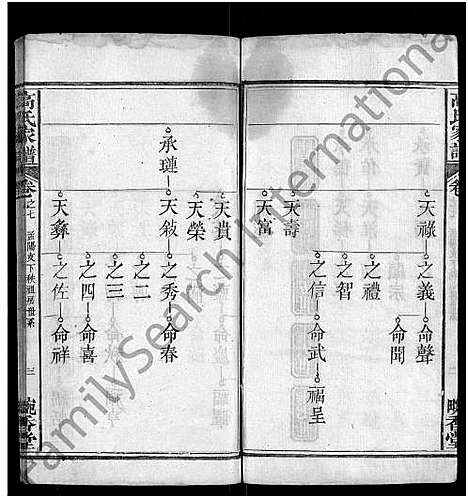 高氏家譜
卷
天祿 之義 命聲
命聞
之禮
之智
之信 命武 福呈
天壽
天富
畹香堂
天貴
天榮
承璉 天敍 之秀 命春
之二
之三
之四 命喜
天彝 之佐 命祥
高氏家譜 卷之七 三 畹香堂
FamilySearch International